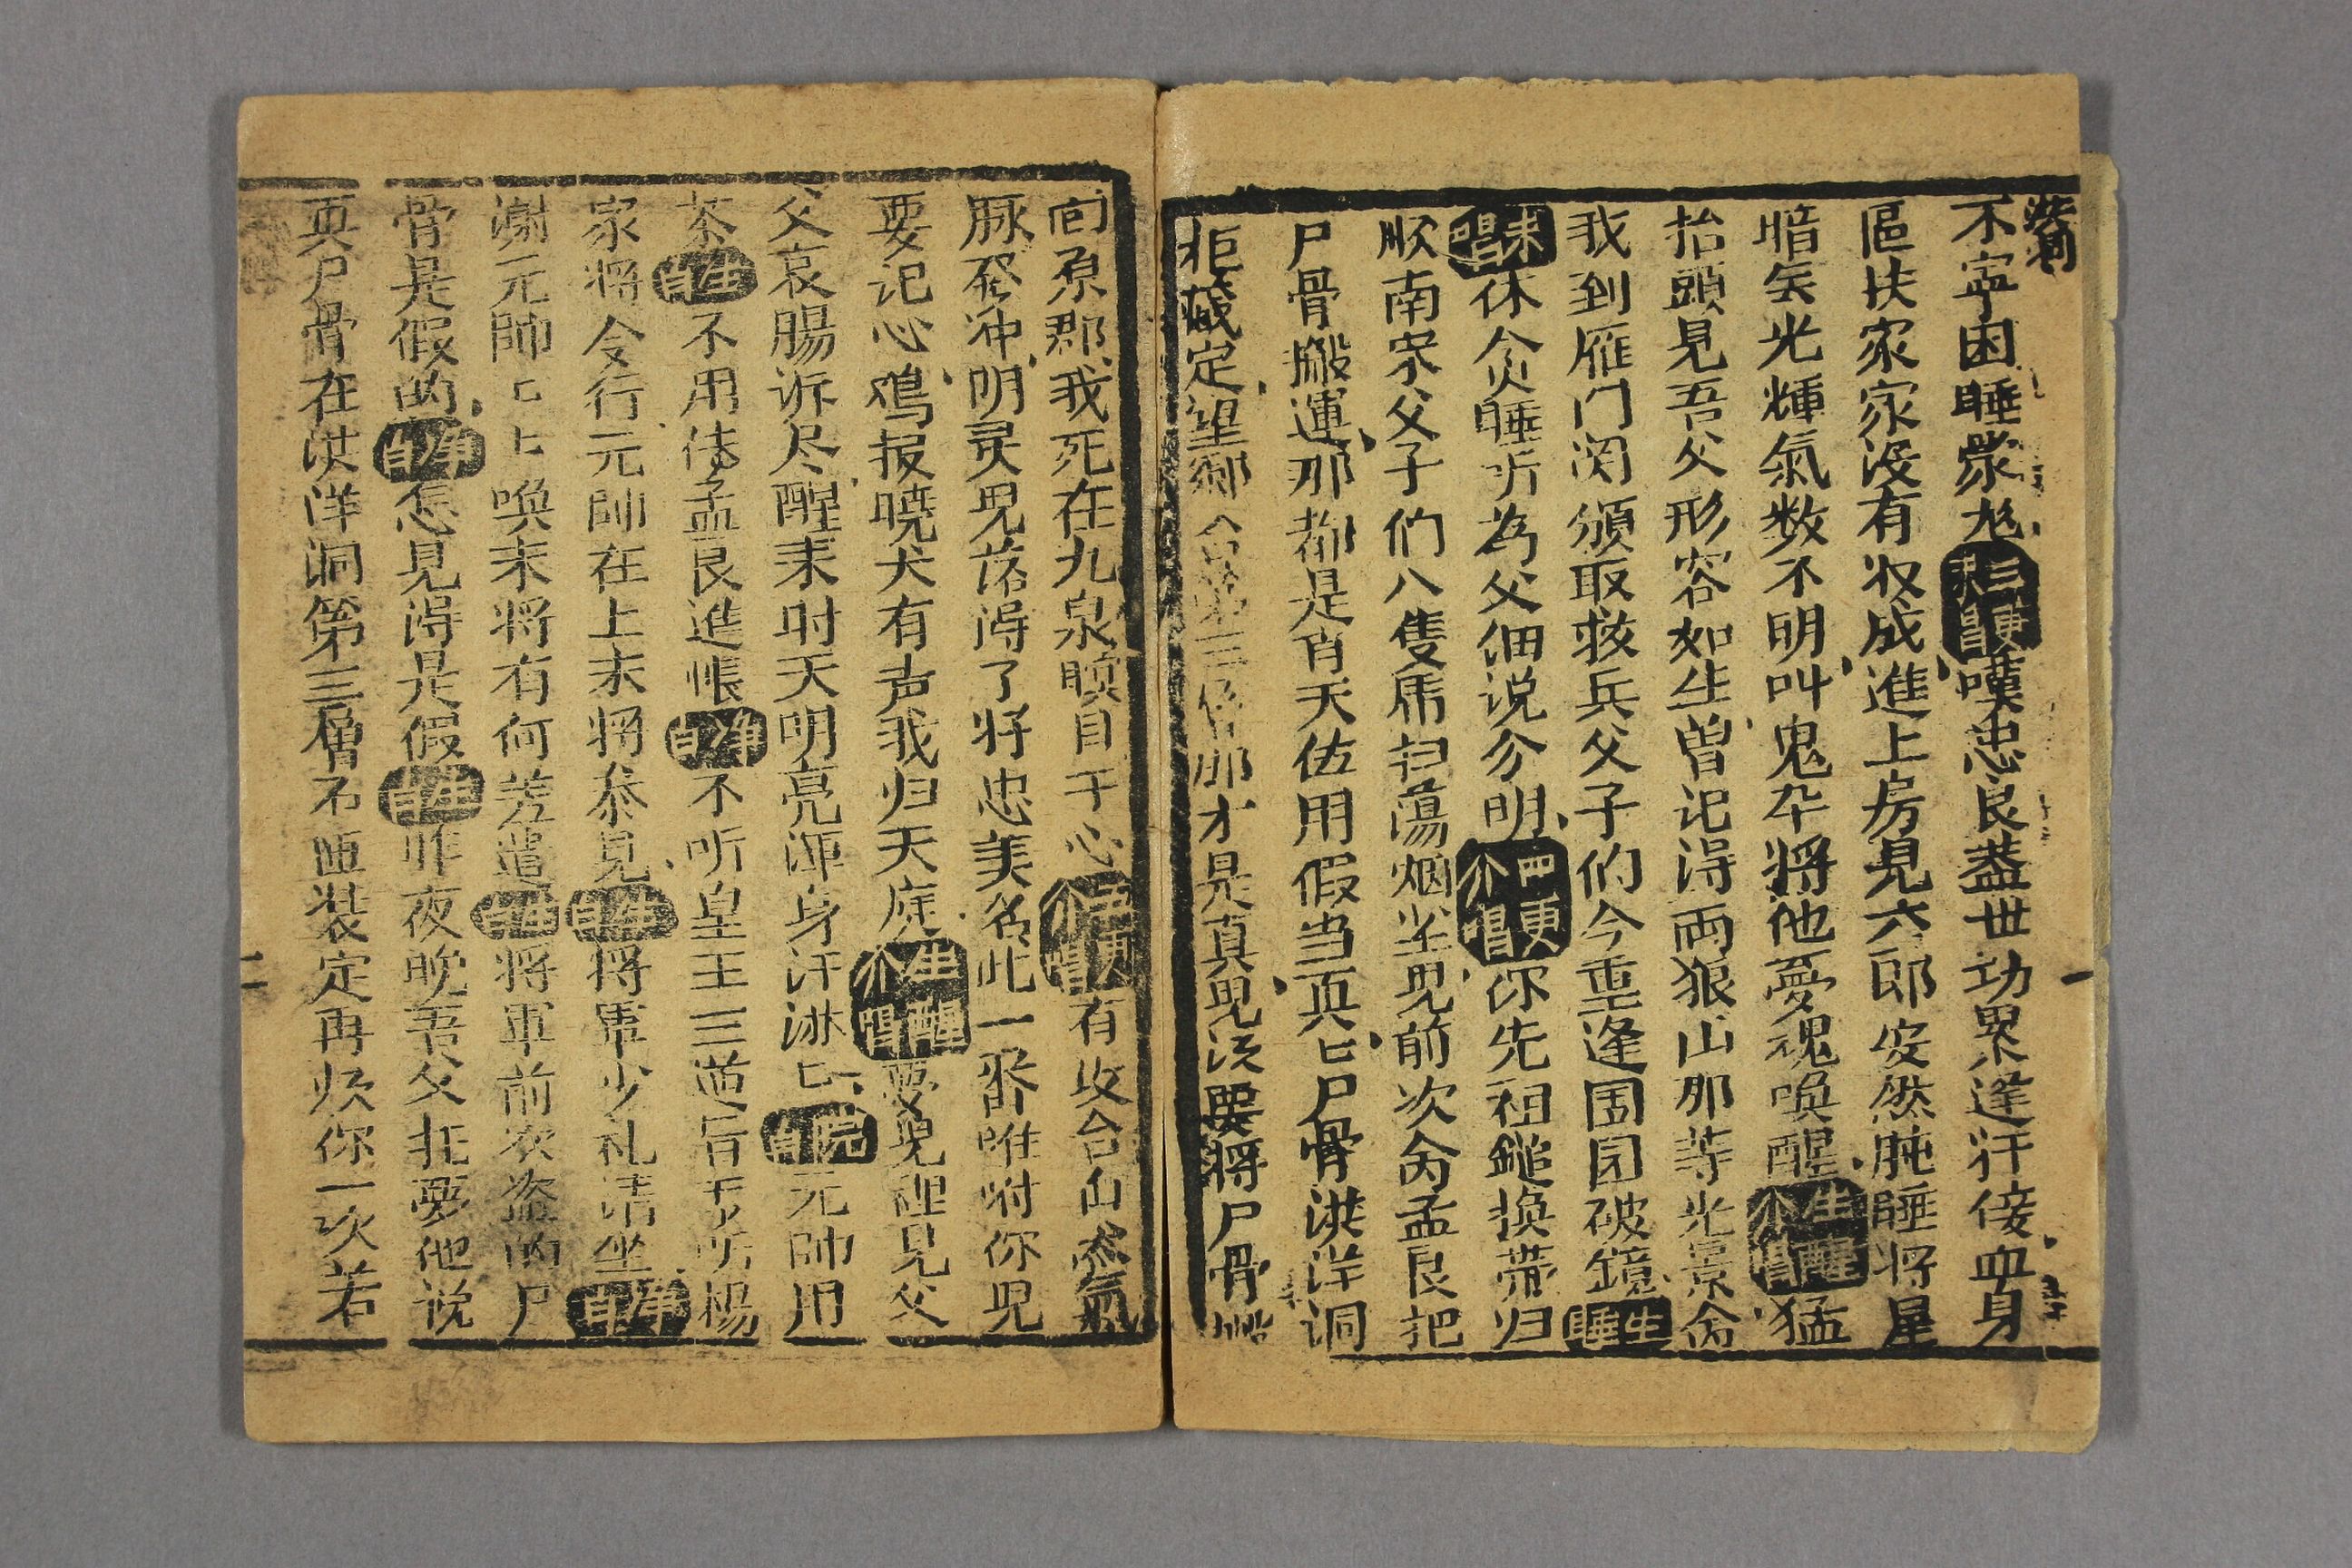 不宁困睡衆尨三更末唱嘆忠良蓋世功累逢汗侫血身
區扶家家没有收成進上房見六郎安然肫睡将星
暗矣光輝氣数不明叫鬼卒将他夢魂喚醒生醒介唱猛
抬頭見吾父形容如生曽记淂両狼山那等光景命
我到雁门関頒取救兵父子们今重逢囯囝破鏡生睡
末唱休贪睡听為父细说分明四更介唱你先祖鎚换帯归
順南宋父子们八隻虎扫蕩烟尘児前次命孟良把
尸骨搬運那都是肖天佐用假当真匕尸骨洪洋洞
拒藏定望鄉台第三層那才是真児決要将尸骨
向原郡我死在九泉瞑目于心五更介唱有攻台山杰氣
脉發冲明灵児落淂了将忠美名此一番唯咐你児
要记心鴉报曉犬有声我归天庭生醒介唱夢児裡見父
父哀腸诉尽醒来时天明亮渾身汗淋匕元白元帅用
茶生白不用传孟良進帳净白不听皇王三道旨于听楊
家将令行元帥在上末将叅見生白将軍少礼请坐净白
謝元帥匕匕喚末将有何差遣生白将軍前次盗的尸
骨是假的净白怎見淂是假生白昨夜晚吾父托夢他说
真尸骨在洪洋洞第三層石匣装定再烦你一次若
二